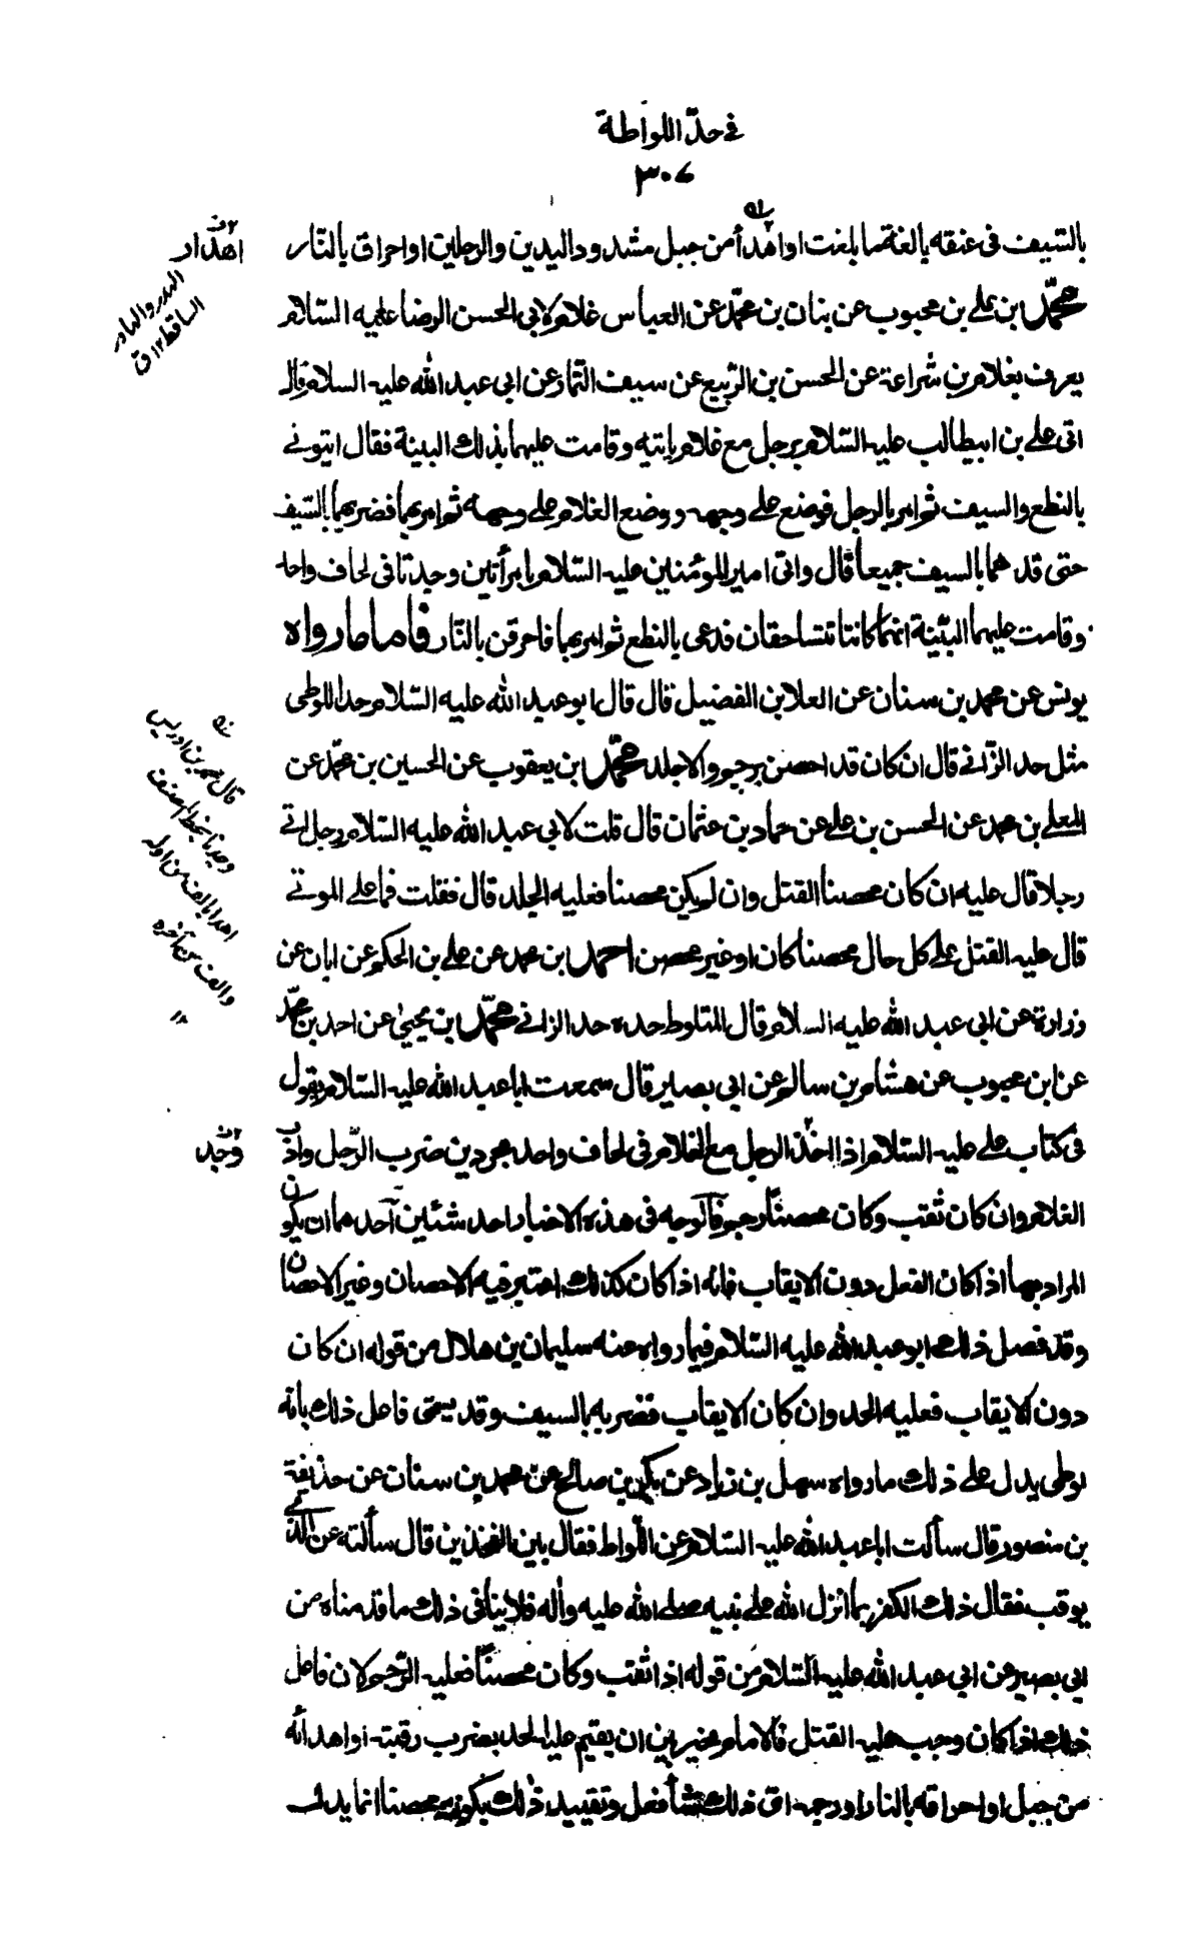 في حدّ اللواطة
٣٠٧
بالسّيف في عنقه بالغة ما بلغت او اهدأ من جبل مشدود اليدين والرجلين او احراق بالنّار
محمّد ابن علي بن محبوب عن بنان بن محمّد عن العباس غلام لابي الحسن الرضا عليه السّلام
يعرف بغلام بن شراعة عن الحسن بن الرّبيع عن سيف التمار عن ابي عبد الله عليه السلام قال
اتى علي بن ابيطالب عليه السّلام برجل مع غلام ياتيه وقامت عليهما بذلك البينة فقال ايتوني
بالنطع والسيف ثم امر بالرجل فوضع على وجهه ووضع الغلام على وجهه ثم امر بهما فضربهما بالسّيف
حتى قدهما بالسيف جميعا قال واتى امير المؤمنين عليه السّلام بامرأتين وجدتا في لحاف واحد
وقامت عليهما البيّنة انهما كانتا تتساحقان فدعى بالنطع ثم امر بهما فاحرقن بالنّار فاما ما رواه
يونس عن محمد بن سنان عن العلا بن الفضيل قال قال ابو عبد الله عليه السّلام حد اللوطي
مثل حد الزّاني قال ان كان قد احصن رجم والا جلد محمّد ابن يعقوب عن الحسين بن محمّد عن
المعلى بن محمد عن الحسن بن علي عن حماد بن عثمان قال قلت لابي عبد الله عليه السّلام رجل اتى
رجلا قال عليه ان كان محصنا القتل وان لم يكن محصنا فعليه الجلد قال فقلت فما على الموتى
قال عليه القتل على كل حال محصنا كان او غير محصن احمد ابن محمد عن علي بن الحكم عن ابان عن
زرارة عن ابي عبد الله عليه السلام قال المتلوط حده حد الزاني محمّد ابن يحيى عن احمد بن محمّد
عن ابن محبوب عن هشام بن سالم عن ابي بصير قال سمعت ابا عبد الله عليه السّلام يقول
في كتاب علي عليه السّلام اذا اخذ الرجل مع الغلام في لحاف واحد مجردين ضرب الرّجل وادّب
الغلام وان كان ثقب وكان محصنا رجم فالوجه في هذه الاخبار احد شئين احدهما ان يكون
المراد بها اذا كان الفعل دون الايقاب فانه اذا كان كذلك اعتبر فيه الاحصان وغير الاحصان
وقد فصل ذلك ابو عبد الله عليه السّلام فيما رواه عنه سليمان بن هلال من قوله ان كان
دون الايقاب فعليه الحد وان كان الايقاب فضربه بالسيف وقد يسمّى فاعل ذلك بانه
لوطي يدل على ذلك ما رواه سهل بن زياد عن بكر بن صالح عن محمد بن سنان عن حذيفة
بن منصور قال سألت ابا عبد الله عليه السّلام عن اللّواط فقال بين الفخذين قال سألته عن الّذي
يوقب فقال ذلك الكفر بما انزل الله على نبيه صلى الله عليه واله فلا ينافي ذلك ما قدمناه من
ابي بصير عن ابي عبد الله عليه السّلام من قوله اذا ثقب وكان محصنا فعليه الرّجم لان فاعل
ذلك اذا كان وجب عليه القتل فالامام مخير بين ان يقيم عليه الحد بضرب رقبته او اهدائه
من جبل او احراقه بالنار او رجمه اي ذلك شأ فعل وتقييد ذلك بكونه محصنا انما يدل
اهدار
الهدر والهادر
الساقط ١٢ ق
قال محمد بن ادريس
وجدنا بخط المصنف
اهدا بالف من اوله
والف من آخره
١٢
وجد